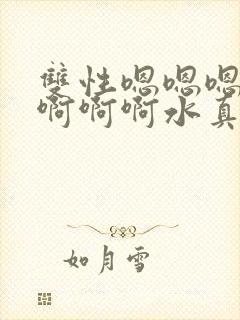 雙性嗯嗯嗯
啊啊啊水真
如月雪